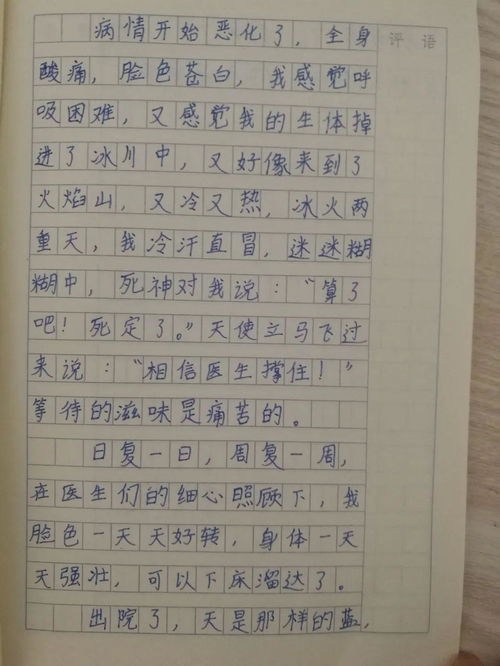 病情开始恶化了，全身
评语
酸痛，脸色苍白，我感觉呼
吸困难，又感觉我的生体掉
进了冰川中，又好像来到了
火焰山，又冷又热，冰火两
重天，我冷汗直冒，迷迷糊
糊中，死神对我说：“算了
吧！死定了。”天使立马飞过
来说：“相信医生撑住！”
等待的滋味是痛苦的。
日复一日，周复一周，
在医生们的细心照顾下，我
脸色一天天好转，身体一天
天强壮，可以下床溜达了。
出院了，天是那样的蓝，